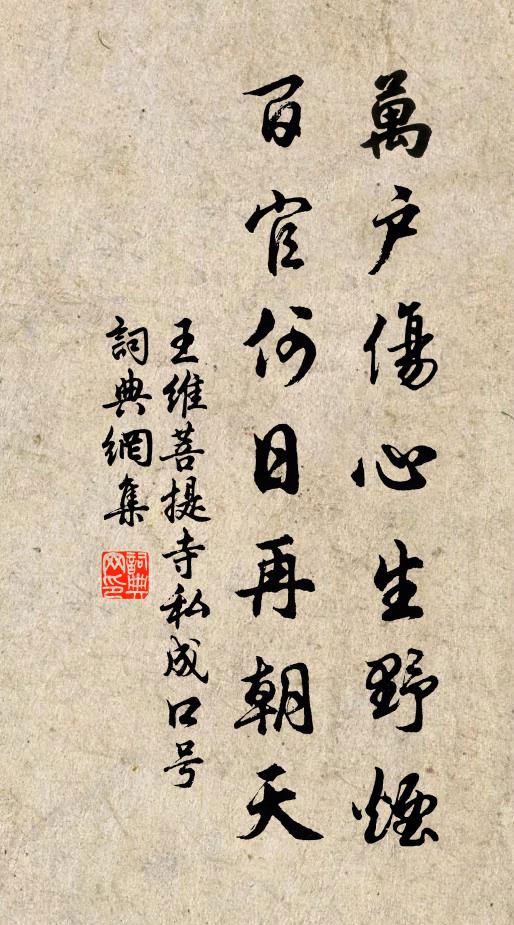 萬户傷心生野煙
百官何日再朝天
王維菩提寺私成口号
詞典網集
詞典网印